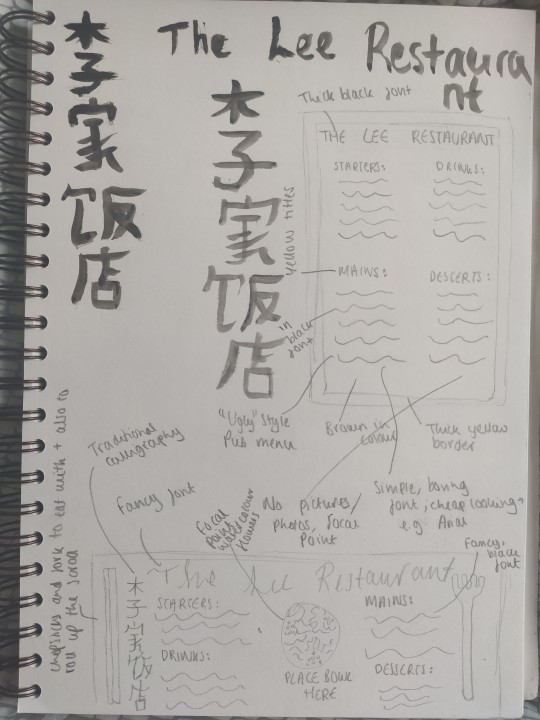 李家饭店
The Lee Restaura
nt
李家饭店
Thick black font
THE LEE RESTAURANT
STARTERS:
DRINKS:
yellow titles
MAINS:
DESSERTS:
in
black
font
"Ugly" style
Pub menu
Brown in
colour
Thick yellow
border
No pictures/
photos, focal
Point
Simple, boring
font, cheap looking
e.g Arial
Traditional
calligraphy
Fancy font
Focal
Point,
watercolour
flowers
Fancy,
black
font
chopsticks and fork to eat with + also to
roll up the scroll
李家饭店
The Lee Restaurant
STARTERS:
DRINKS:
PLACE BOWL
HERE
MAINS:
DESSERTS: